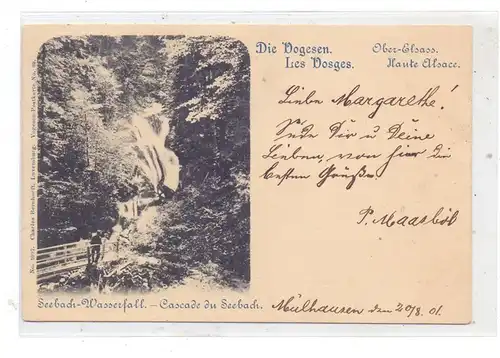 Die Vogesen.
Les Vosges.
Ober-Elsass.
Haute Alsace.
Liebe Margarethe!
Sende Dir u Deine
Lieben, von hier die
besten Grüße
P. Maasböl
Mülhausen den 20/8. 01.
Seebach-Wasserfall. – Cascade du Seebach.
Charles Bernhoeft, Luxemburg. Vogesen-Postkarte No.